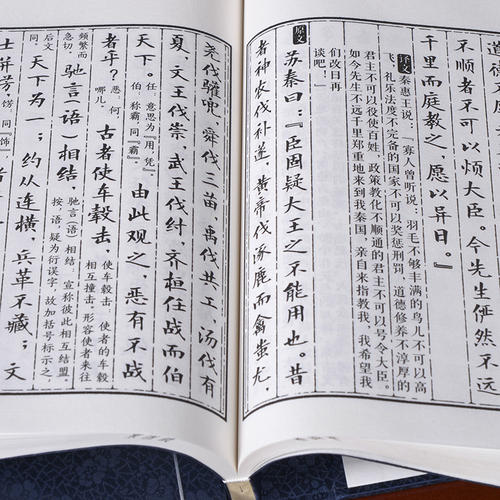 不顺者不可以烦大臣。今先生
千里而庭教之，愿以异日。』
译文 秦惠王说：『寡人曾听说：羽毛不够丰满的鸟儿不可以高
飞，礼乐法度不完备的国家不可以奖惩刑罚，道德修养不淳厚的
君主不可以役使百姓，政策教化不顺通的君主不可以号令大臣。
如今先生不远千里郑重地来到我秦国，亲自来指教我，我希望我
们改日再
谈吧！』
原文 苏秦曰：『臣固疑大王之不能用也。昔
者神农伐补遂，黄帝伐涿鹿而禽蚩尤，
尧伐驩兜，舜伐三苗，禹伐共工，汤伐有
夏，文王伐崇，武王伐纣，齐桓任战而伯
天下。任，意思为『用，凭』伯，称霸，同『霸』由此观之，恶有不战
者乎？恶，何，哪儿。古者使车毂击，使车毂击，使者的车毂相互撞击，形容使者来往
频繁而急切。驰言（语）相结，驰言（语）相结，宣称彼此相互结盟。按：语疑为衍误字，故加括号标示之，
后文同。天下为一；约从连横，兵革不藏；文
士并饬，饬，同『饰』